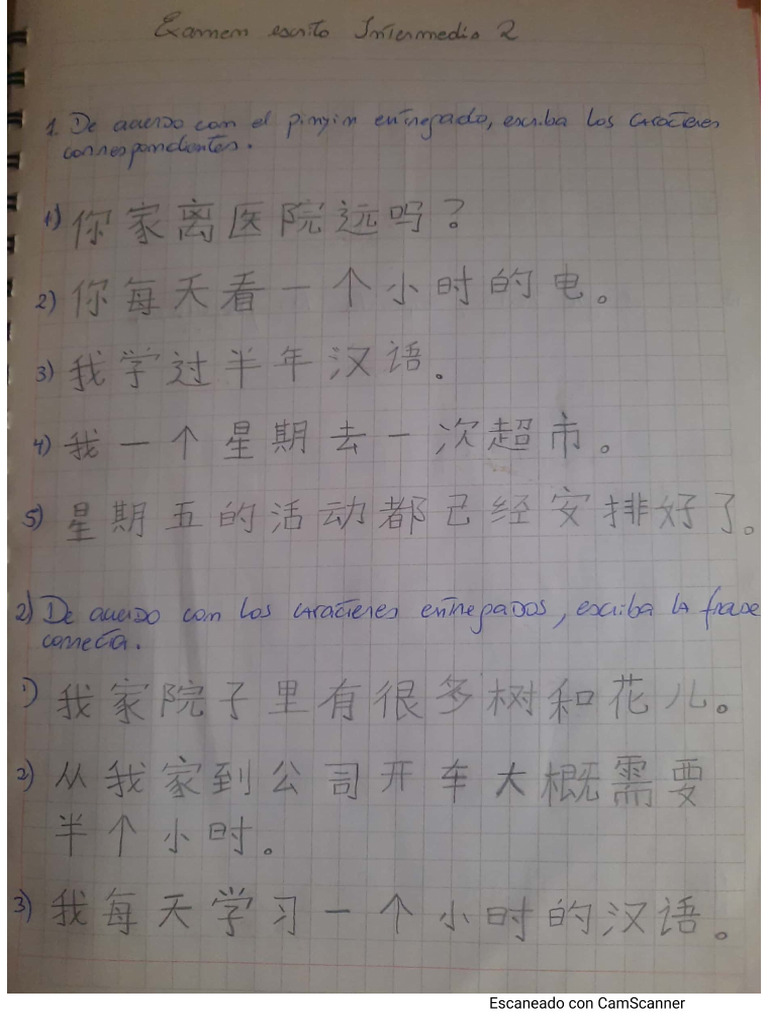 Examen escrito Intermedio 2
1. De acuerdo con el pinyin entregado, escriba los caracteres
correspondientes.
1) 你家离医院远吗？
2) 你每天看一个小时的电。
3) 我学过半年汉语。
4) 我一个星期去一次超市。
5) 星期五的活动都已经安排好了。
2) De acuerdo con los caracteres entregados, escriba la frase
correcta.
1) 我家院子里有很多树和花儿。
2) 从我家到公司开车大概需要
半个小时。
3) 我每天学习一个小时的汉语。
Escaneado con CamScanner